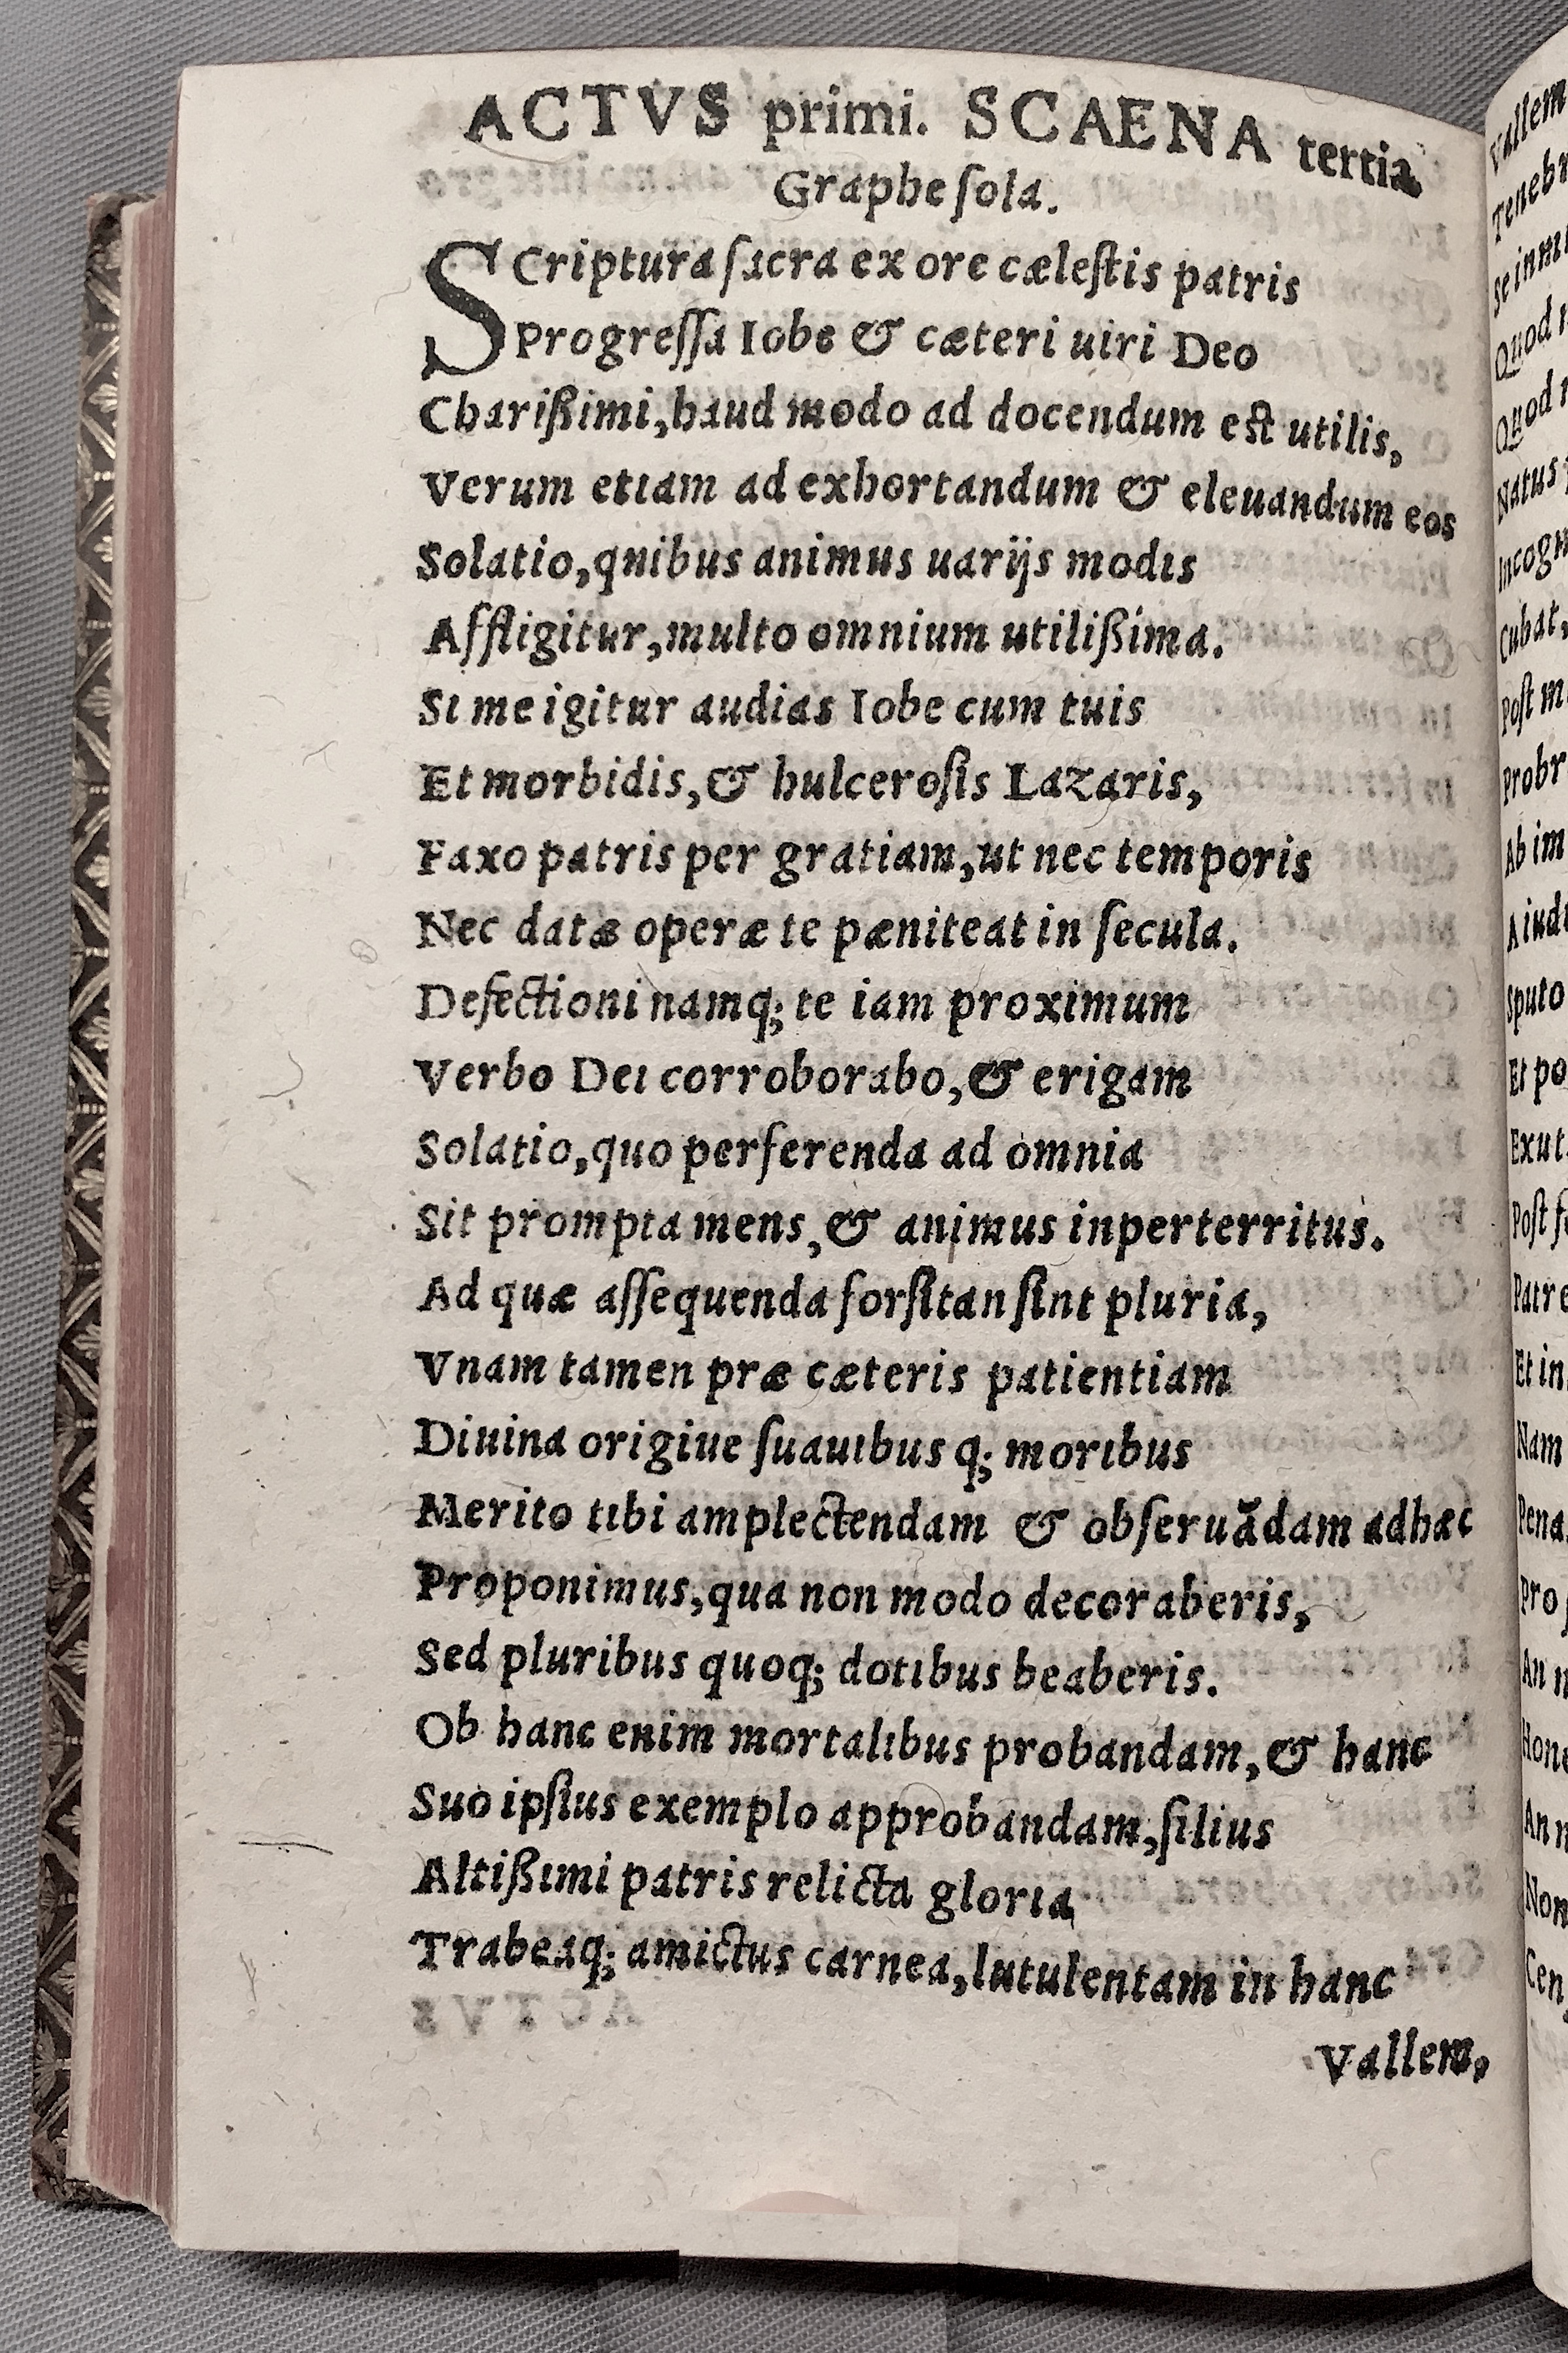 ACTVS primi. SCAENA tertia
Graphe ſola.
SCriptura ſacra ex ore cæleſtis patris
Progreſſa Iobe & cæteri uiri Deo
Chariſſimi, haud modo ad docendum eſt utilis,
Verum etiam ad exhortandum & eleuandum eos
Solatio, qnibus animus uarijs modis
Affligitur, multo omnium utiliſſima.
Si me igitur audias Iobe cum tuis
Et morbidis, & hulceroſis Lazaris,
Faxo patris per gratiam, ut nec temporis
Nec datæ operæ te pæniteat in ſecula.
Defectioni namq; te iam proximum
Verbo Dei corroborabo, & erigam
Solatio, quo perferenda ad omnia
Sit prompta mens, & animus inperterritus.
Ad quæ aſſequenda forſitan ſint pluria,
Vnam tamen præ cæteris patientiam
Diuina origiue ſuauibus q; moribus
Merito tibi amplectendam & obſeruādam adhæc
Proponimus, qua non modo decoraberis,
Sed pluribus quoq; dotibus beaberis.
Ob hanc enim mortalibus probandam, & hanc
Suo ipſius exemplo approbandam, filius
Altiſſimi patris relicta gloria
Trabeaq; amictus carnea, lutulentam in hanc
Vallem,
Vallem
Tenebr
Quod
Quod
Natus
Incogn
Cubat,
Poſt m
Probr
Ab im
A iud
Sputo
Et po
Exut
Poſt
Patre
Et in
Nam
Pro
An
Hone
An
Non
Cen